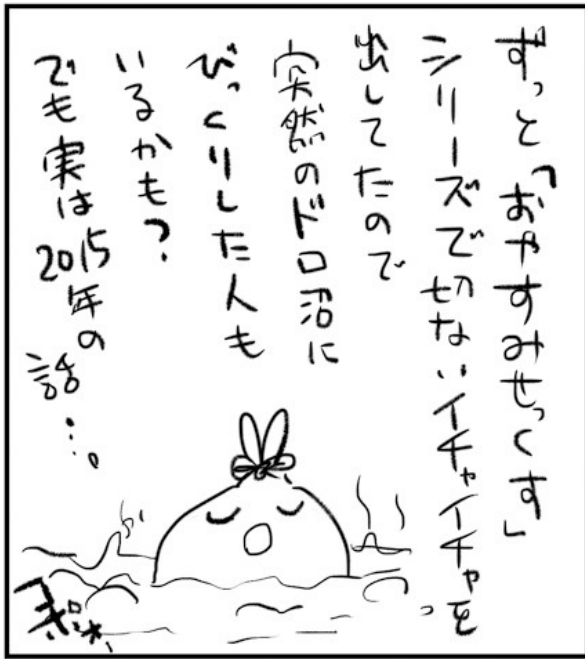 ずっと「おやすみせっくす」
シリーズで切ないイチャイチャを
出してたので
突然のドロ沼に
びっくりした人も
いるかも？
でも実は2015年の
話…。